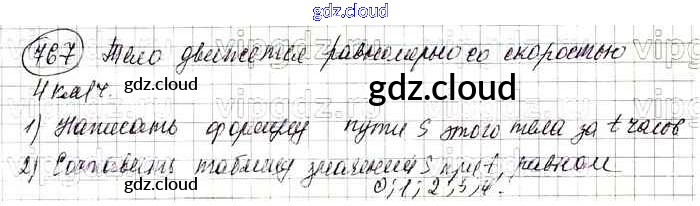 gdz.cloud
767 Тело движется равномерно со скоростью
4 км/ч.
gdz.cloud
1) Написать формулу пути S этого тела за t часов
2) Составить таблицу значений S при t, равном
0; 1; 2; 3; 4.
gdz.cloud